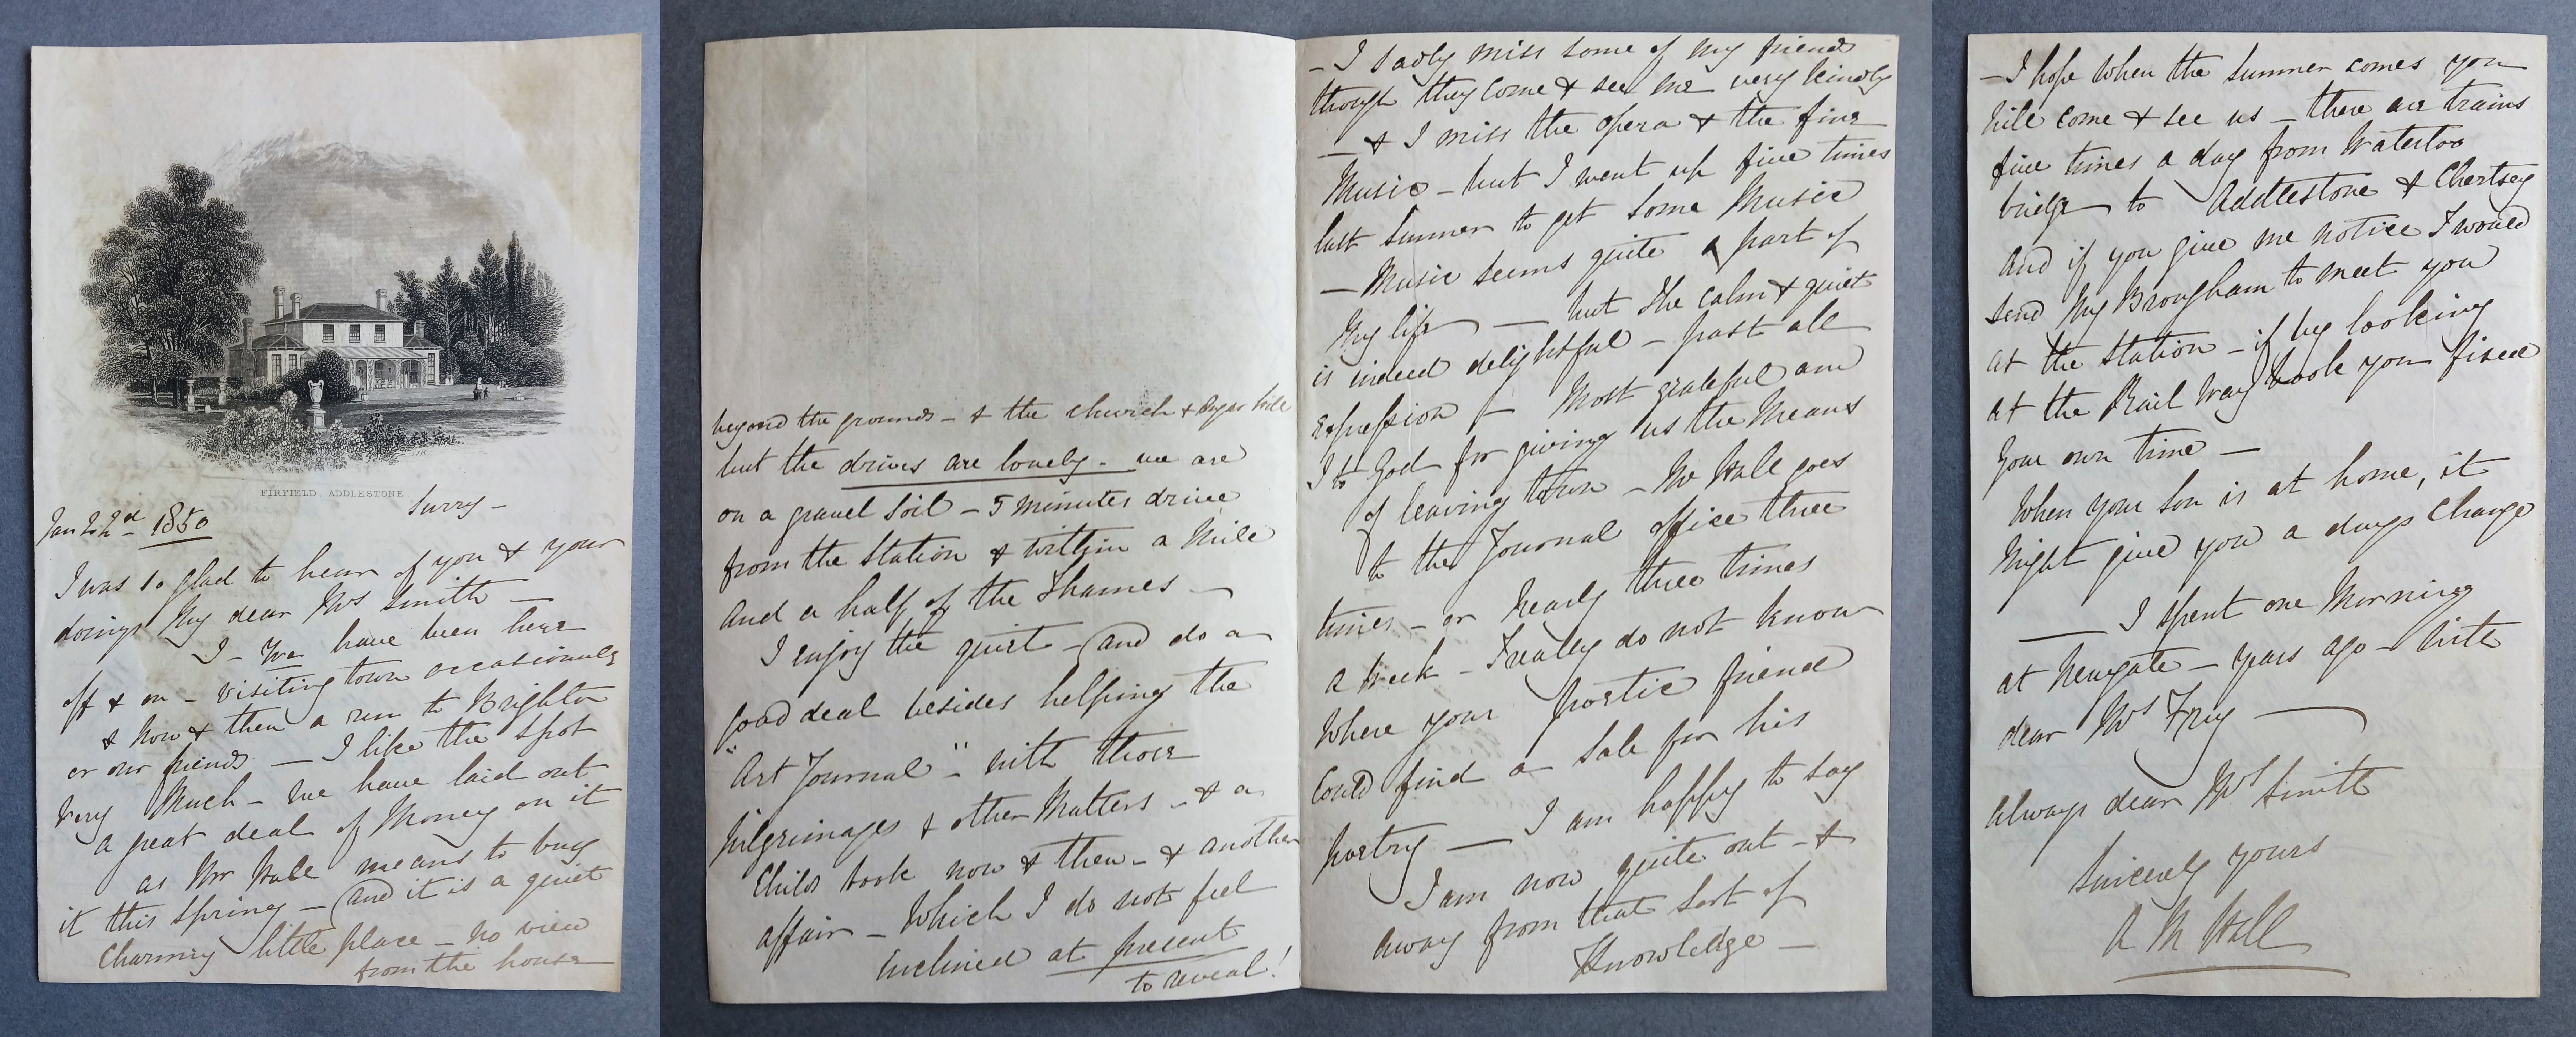 FIRFIELD, ADDLESTONE
Surry –
Jan 22nd – 1850
I was so glad to hear of you & your
doings My dear Mrs Smith –
I – We have been here
off & on – visiting town occasionally
& now & then a run to Brighton
or our friends – I like the spot
very Much – We have laid out
a great deal of Money on it
as Mr Hall means to buy
it this spring – and it is a quiet
Charming little place – no view
from the house
beyond the grounds – & the church &
but the drives are lovely – we are
on a gravel soil – 5 minutes drive
from the station & within a Mile
and a half of the Thames –
I enjoy the quiet – and do a
good deal besides helping the
"Art Journal" – with those
pilgrimages & other Matters – & a
Childs book now & then – & another
affair – Which I do not feel
inclined at present
to reveal!
– I sadly miss some of My friends
though they come & see me very kindly
– & I miss the opera & the fine
Music – but I went up five times
last summer to get some Music
– Music seems quite a part of
My life – but the calm & quiet
is indeed delightful – past all
expression – Most grateful am
I to God for giving us the Means
of leaving town – Mr Hall goes
to the Journal office three
times – or nearly three times
a week – I really do not know
Where your poetic friend
Could find a sale for his
poetry – I am happy to say
I am now quite out – &
away from that sort of
Knowledge –
– I hope when the summer comes you
will come & see us – there are trains
five times a day from Waterloo
bridge to Addlestone & Chertsey
and if you give me notice I would
send My Brougham to meet you
at the station – if by looking
at the Rail Way book you fixed
Your own time –
When your son is at home, it
Might give you a days Change
– I spent one Morning
at Newgate – years ago – with
dear Mrs Fry –
always dear Mrs Smith
Sincerely yours
A M Hall